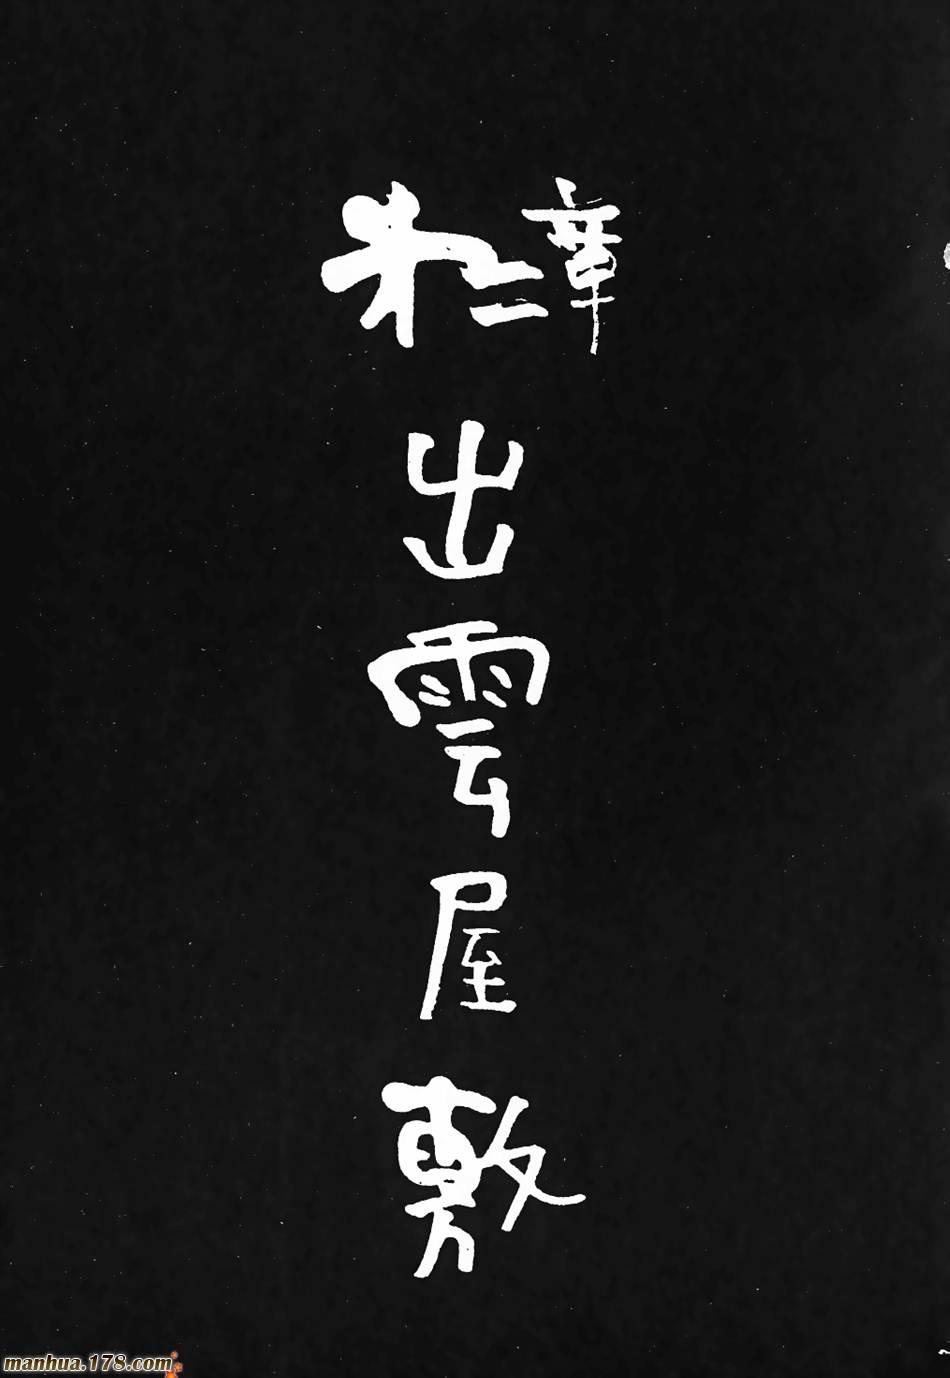 第二章
出雲屋敷
manhua.178.com